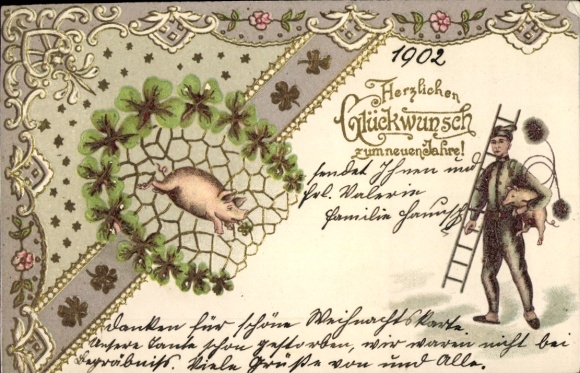 1902
Herzlichen
Glückwunsch
zum neuen Jahre!
sendet Ihnen und
Frl. Valerie
Familie
danken für schöne Weihnachtskarte
Unsere Tante schon gestorben, wir waren nicht bei
Begräbniss. Viele Grüße von und Alle.